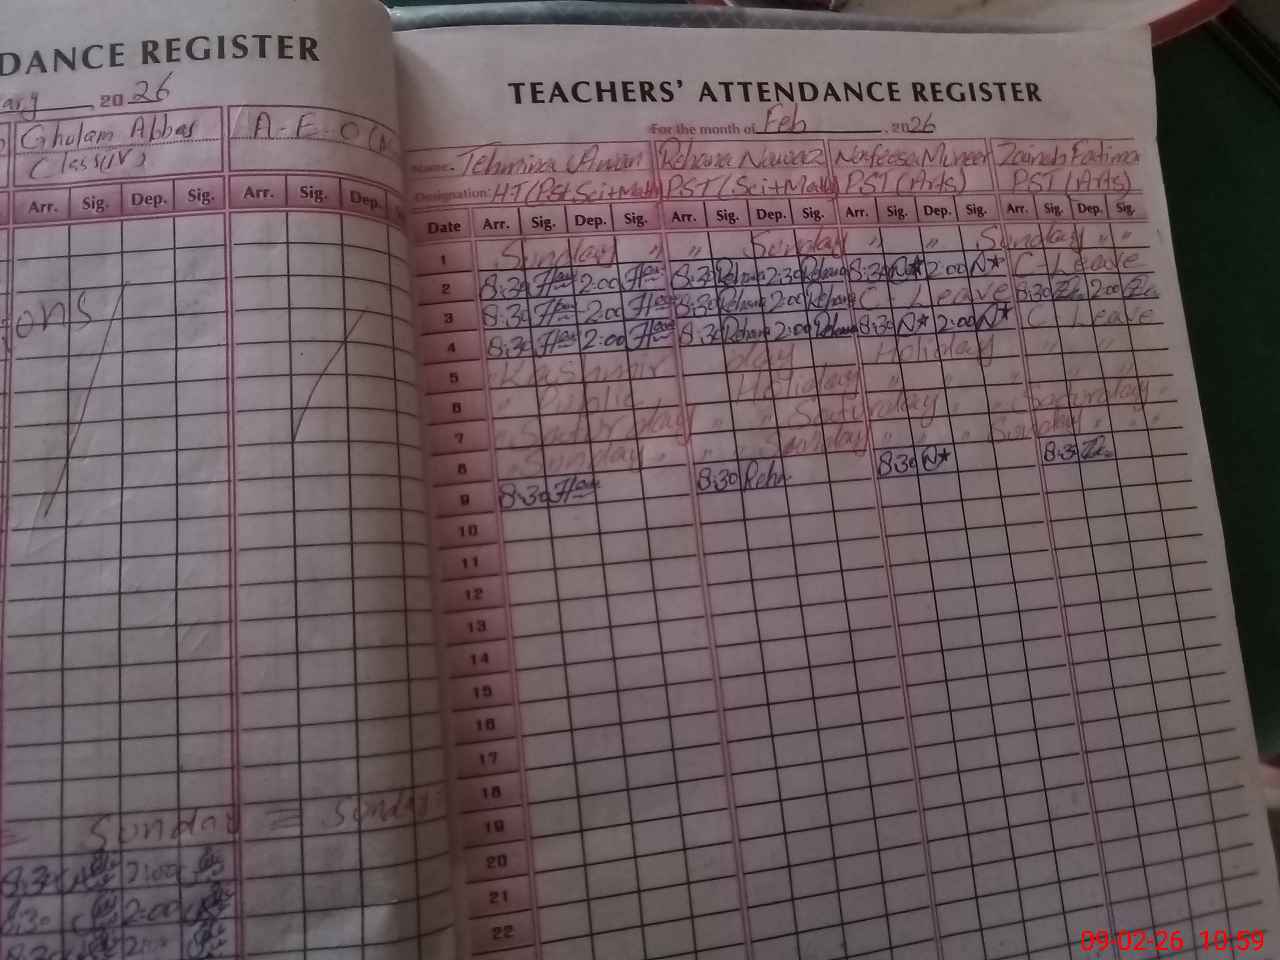 DANCE REGISTER
ary 2026
Gholam Abbas A-E-O (N
Class(IV)
Arr. Sig. Dep. Sig. Arr. Sig. Dep.
ons
Sunday = Sunday
8:30 2:00
8:30 2:00
8:30
TEACHERS' ATTENDANCE REGISTER
For the month of Feb, 2026
Name: Tehmina Awan Rehana Nawaz Nafeesa Muneer Zainab Fatima
Designation: HT(PST Sci+Math) PST(Sci+Math) PST(Arts) PST(Arts)
Date Arr. Sig. Dep. Sig. Arr. Sig. Dep. Sig. Arr. Sig. Dep. Sig. Arr. Sig. Dep. Sig.
1 Sunday " " Sunday " " Sunday " "
2 8:30 2:00 8:30 Rehana 2:30 Rehana 8:30 N* 2:00 N* C-Leave
3 8:30 2:00 8:30 Rehana 2:00 Rehana C-Leave 8:30 2:00
4 8:30 2:00 8:30 Rehana 2:00 Rehana 8:30 N* 2:00 N* C Leave
5 Kashmir day Holiday " "
6 " Public " Holiday " " " "
7 Saturday " Saturday " Saturday "
8 Sunday " Sunday " " Sunday " "
9 8:30 8:30 Reha 8:30 N* 8:30
10
11
12
13
14
15
16
17
18
19
20
21
22
09-02-26 10:59